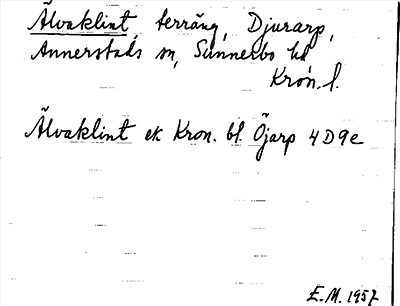 Älvaklint, terräng, Djurarp,
Annerstads sn, Sunnerbo hd
Kron. l.
Älvaklint ek Kron. bl. Öjarp 4D9e
E.M. 1957